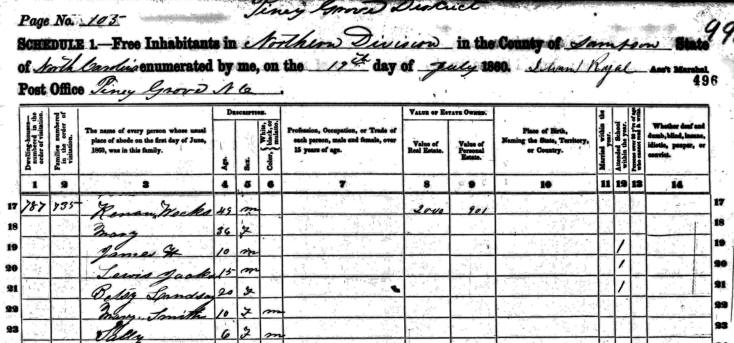 Piney Grove District
Page No. 103
99
SCHEDULE 1.—Free Inhabitants in Northern Division in the County of Sampson State
of North Carolina enumerated by me, on the 19th day of July 1860. Royal Ass't Marshal.
496
Post Office Piney Grove N C.
DESCRIPTION. VALUE OF ESTATE OWNED.
Dwelling-houses—numbered in the order of visitation. Families numbered in the order of visitation. The name of every person whose usual place of abode on the first day of June, 1860, was in this family. Age. Sex. Color, White, black, or mulatto. Profession, Occupation, or Trade of each person, male and female, over 15 years of age. Value of Real Estate. Value of Personal Estate. Place of Birth, Naming the State, Territory, or Country. Married within the year. Attended School within the year. Persons over 20 y'rs of age who cannot read & write. Whether deaf and dumb, blind, insane, idiotic, pauper, or convict.
1 2 3 4 5 6 7 8 9 10 11 12 13 14
17 787 735 Kenan Weeks 49 m 2000 901 17
18 Mary 36 f 18
19 James H 10 m 1 19
20 Lewis Jacks 15 m 1 20
21 Betsy 20 f 1 21
22 Mary Smith 10 f m 22
23 Sally 6 f m 23